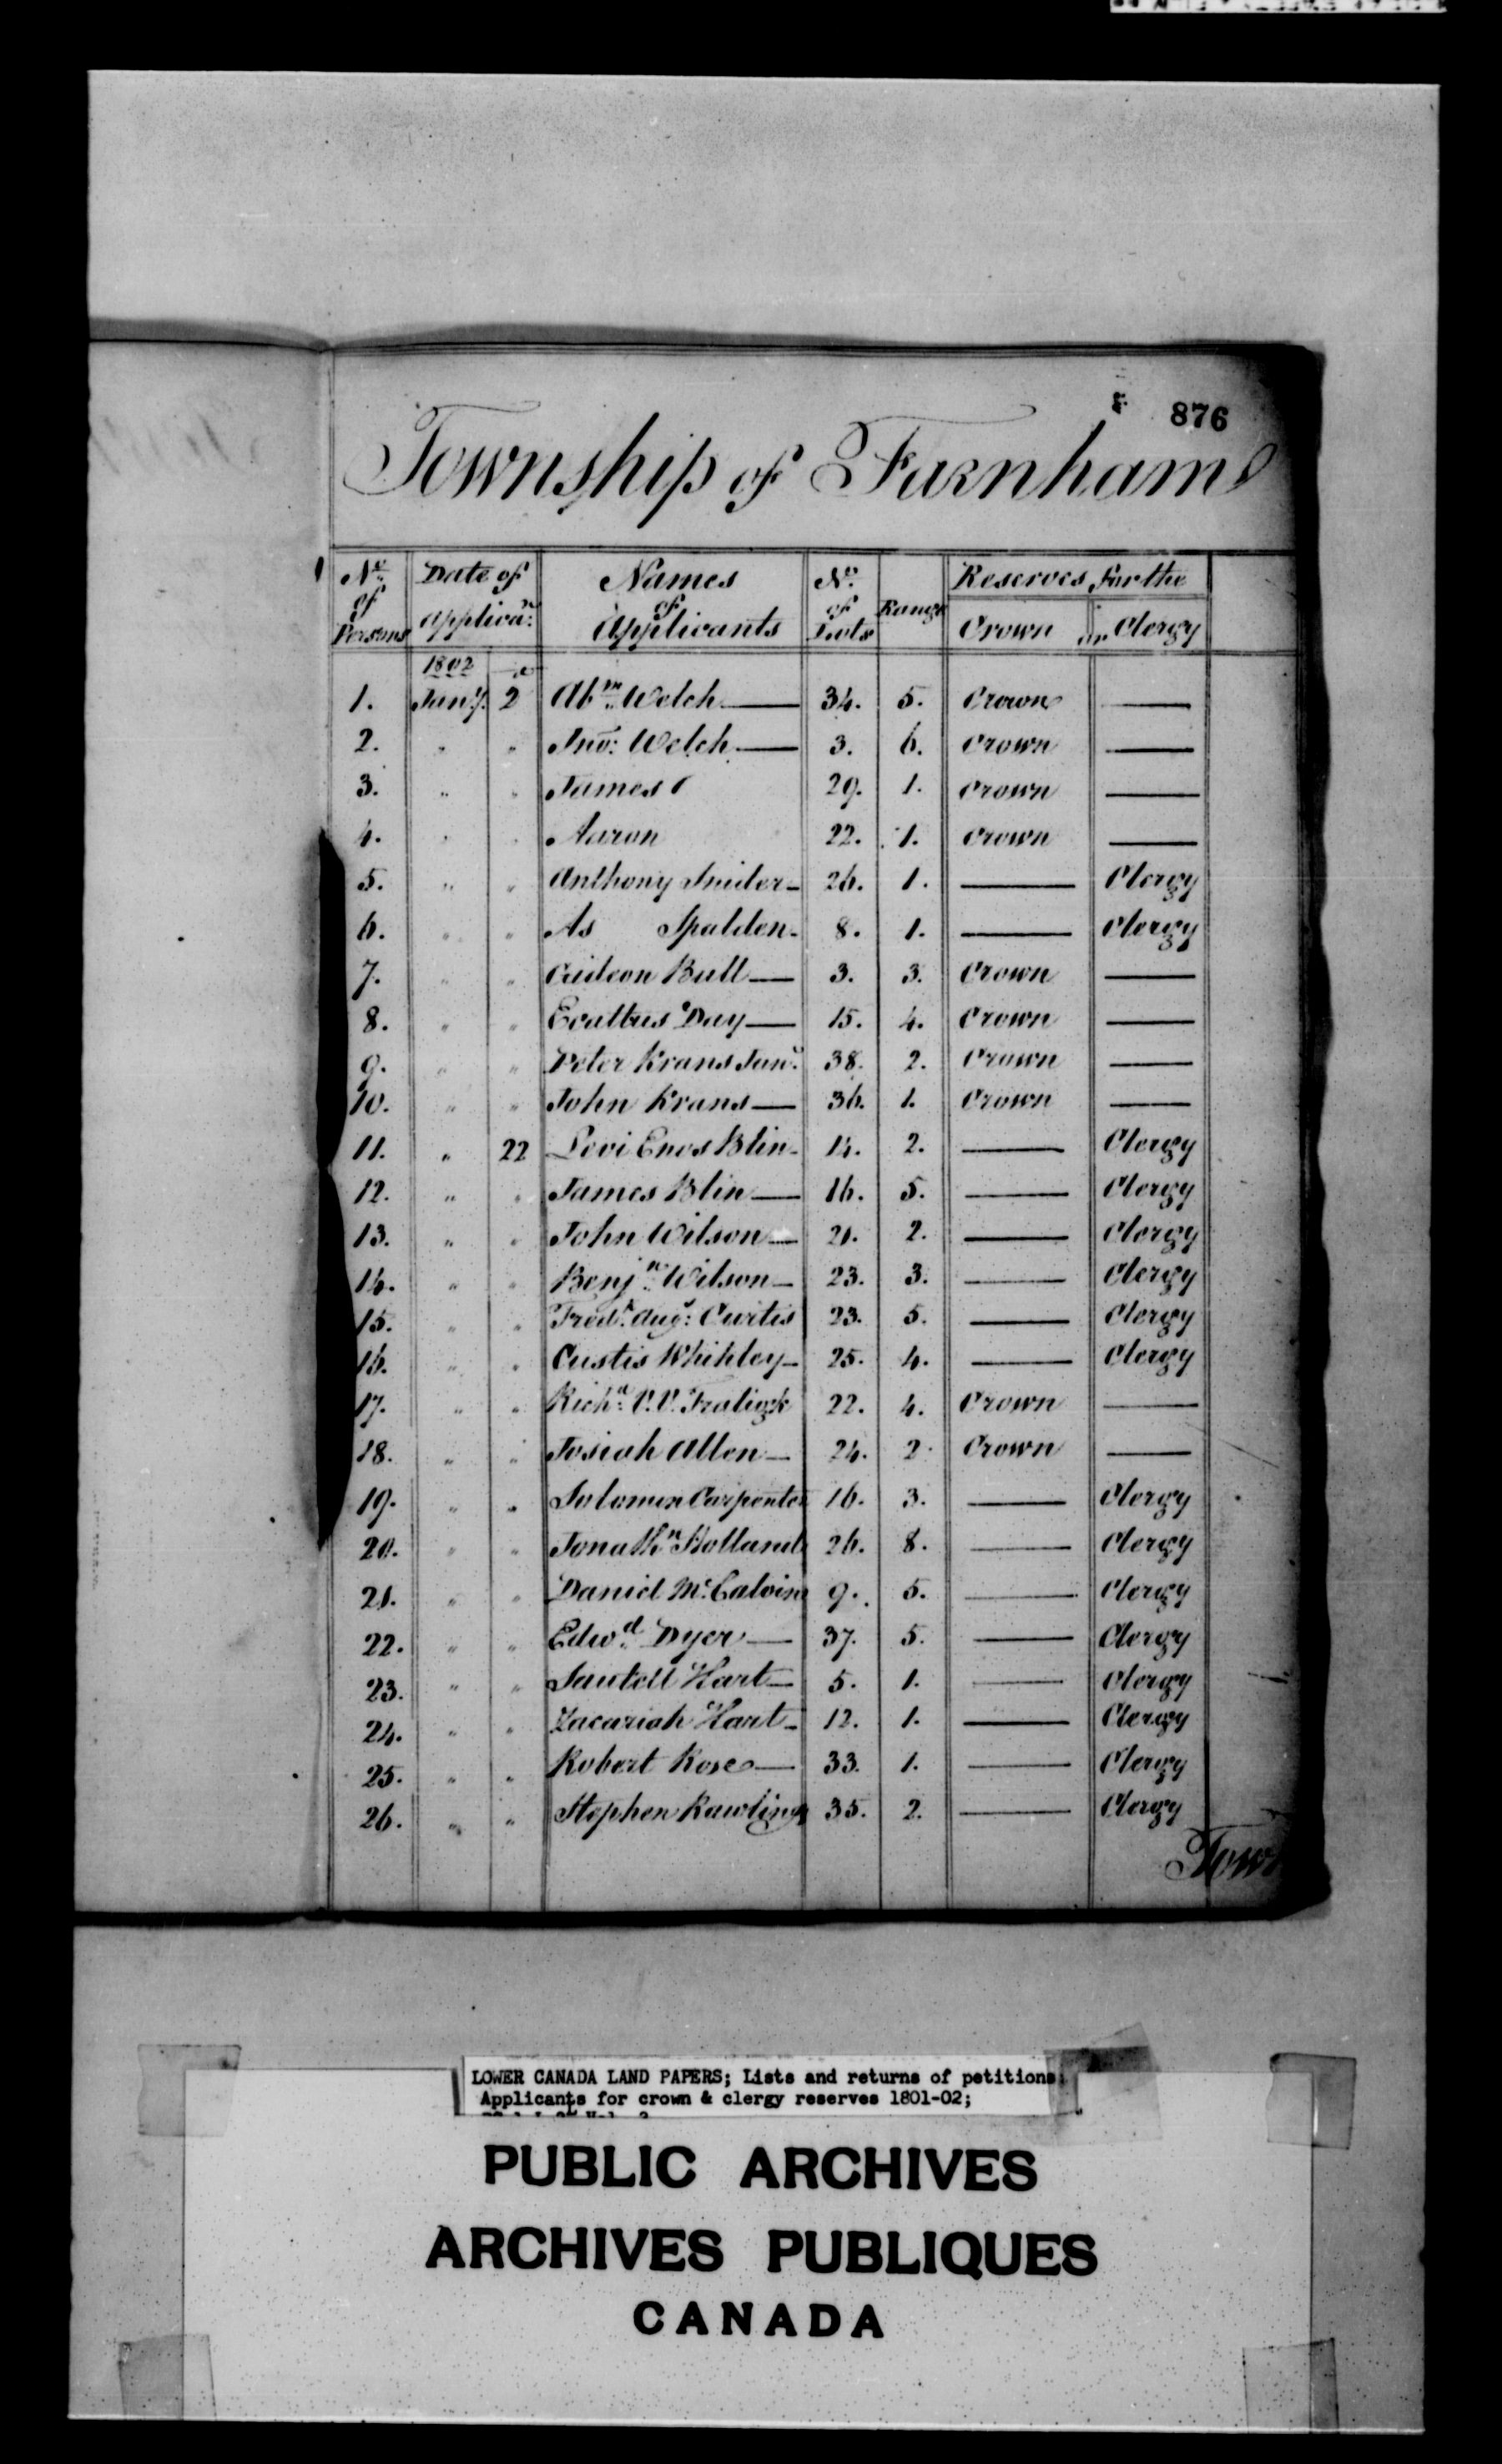 876
Township of Farnham
No. of Persons Date of Applican. Names of Applicants No. of Lots Range Reserves for the Crown or Clergy
1802
1. Jany. 2 Abm. Welch 34. 5. Crown —
2. " " Jno: Welch 3. 6. Crown —
3. " " James 29. 1. Crown —
4. " " Aaron 22. 1. Crown —
5. " " Anthony Snider 26. 1. — Clergy
6. " " As Spalden 8. 1. — Clergy
7. " " Gideon Bull 3. 3. Crown —
8. " " Day 15. 4. Crown —
9. " " Peter Krans Junr. 38. 2. Crown —
10. " " John Krans 36. 1. Crown —
11. " 22 Levi Enos Blin 14. 2. — Clergy
12. " " James Blin 16. 5. — Clergy
13. " " John Wilson 21. 2. — Clergy
14. " " Benjn. Wilson 23. 3. — Clergy
15. " " Fredk. Augs. Curtis 23. 5. — Clergy
16. " " Custis 25. 4. — Clergy
17. " " Richd. V.V. Fraligk 22. 4. Crown —
18. " " Josiah Allen 24. 2. Crown —
19. " " Solomon Carpenter 16. 3. — Clergy
20. " " Jonathn. Holland 26. 8. — Clergy
21. " " Daniel McCalvin 9. 5. — Clergy
22. " " Edwd. Dyer 37. 5. — Clergy
23. " " Sawtell Hart 5. 1. — Clergy
24. " " Zacariah Hart 12. 1. — Clergy
25. " " Robert Rose 33. 1. — Clergy
26. " " Stephen Rawlings 35. 2. — Clergy
Town
LOWER CANADA LAND PAPERS; Lists and returns of petitions;
Applicants for crown & clergy reserves 1801-02;
PUBLIC ARCHIVES
ARCHIVES PUBLIQUES
CANADA